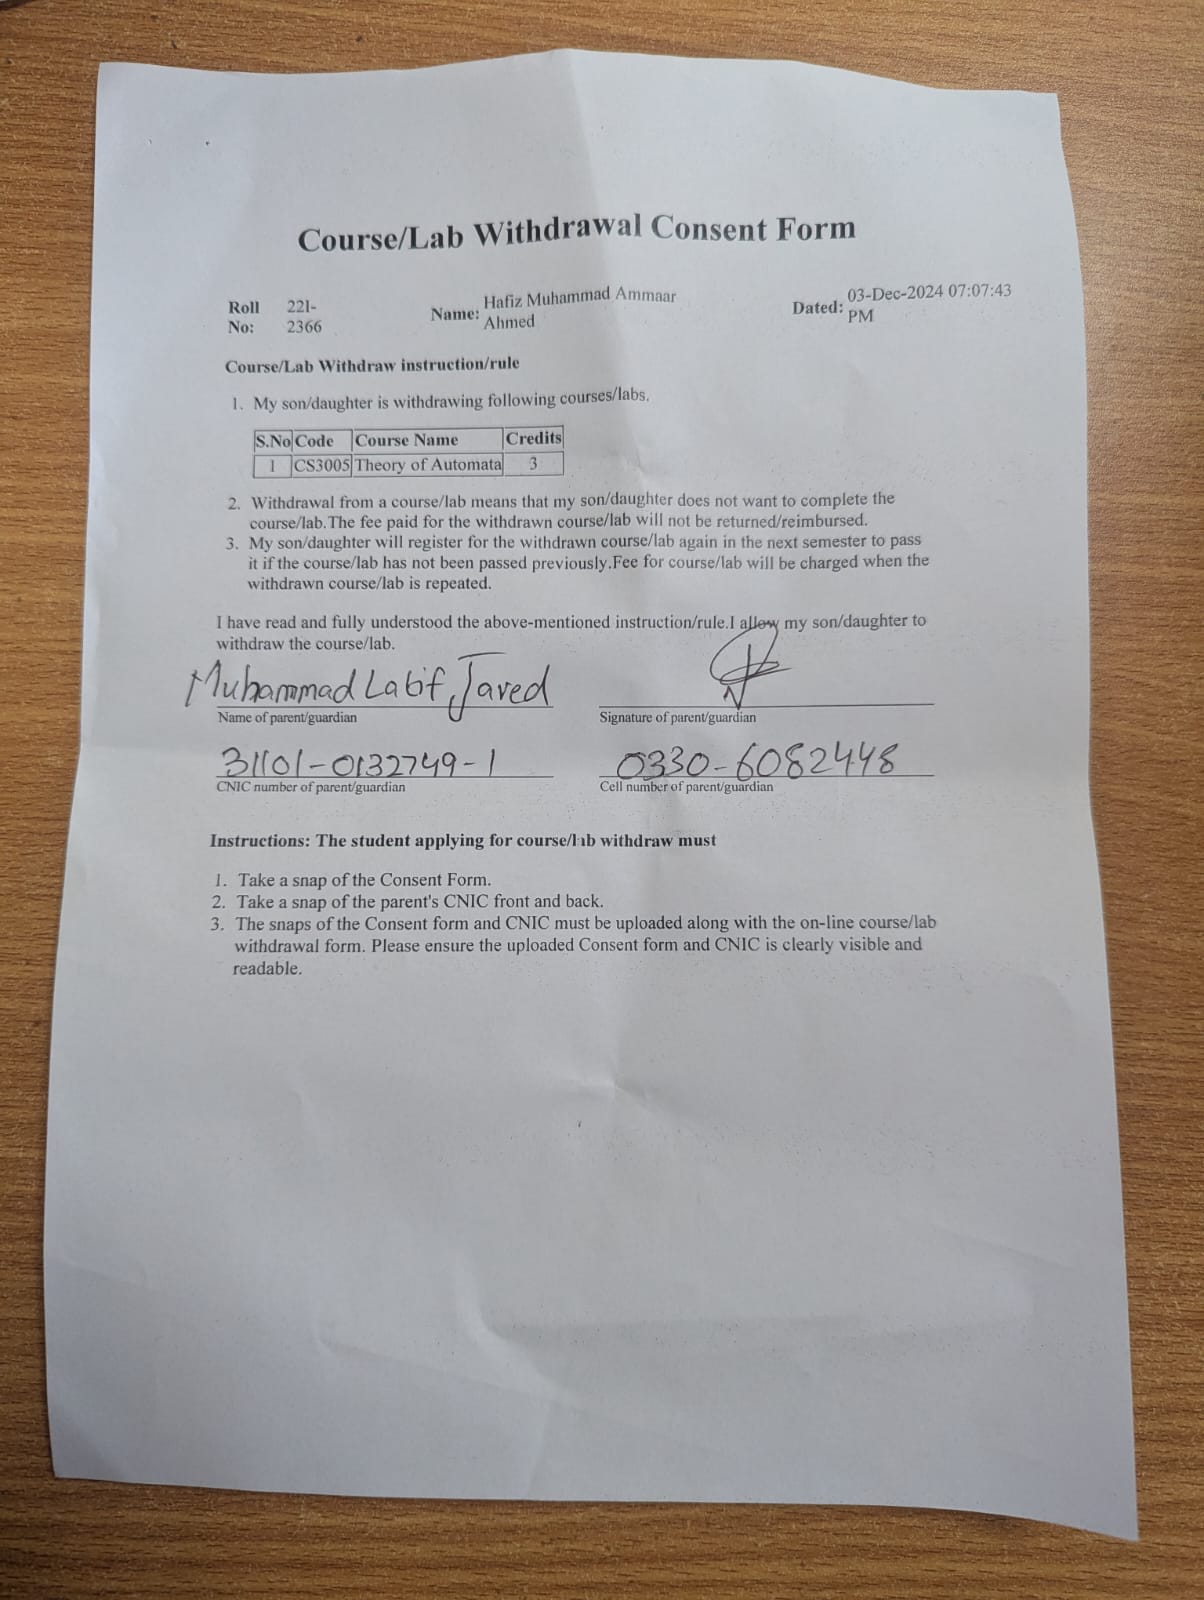 Course/Lab Withdrawal Consent Form
Roll No: 22I-2366 Name: Hafiz Muhammad Ammaar Ahmed Dated: 03-Dec-2024 07:07:43 PM
Course/Lab Withdraw instruction/rule
1. My son/daughter is withdrawing following courses/labs.
S.No Code Course Name Credits
1 CS3005 Theory of Automata 3
2. Withdrawal from a course/lab means that my son/daughter does not want to complete the
course/lab.The fee paid for the withdrawn course/lab will not be returned/reimbursed.
3. My son/daughter will register for the withdrawn course/lab again in the next semester to pass
it if the course/lab has not been passed previously.Fee for course/lab will be charged when the
withdrawn course/lab is repeated.
I have read and fully understood the above-mentioned instruction/rule.I allow my son/daughter to
withdraw the course/lab.
Muhammad Latif Javed
Name of parent/guardian Signature of parent/guardian
31101-0132749-1 0330-6082448
CNIC number of parent/guardian Cell number of parent/guardian
Instructions: The student applying for course/lab withdraw must
1. Take a snap of the Consent Form.
2. Take a snap of the parent's CNIC front and back.
3. The snaps of the Consent form and CNIC must be uploaded along with the on-line course/lab
withdrawal form. Please ensure the uploaded Consent form and CNIC is clearly visible and
readable.